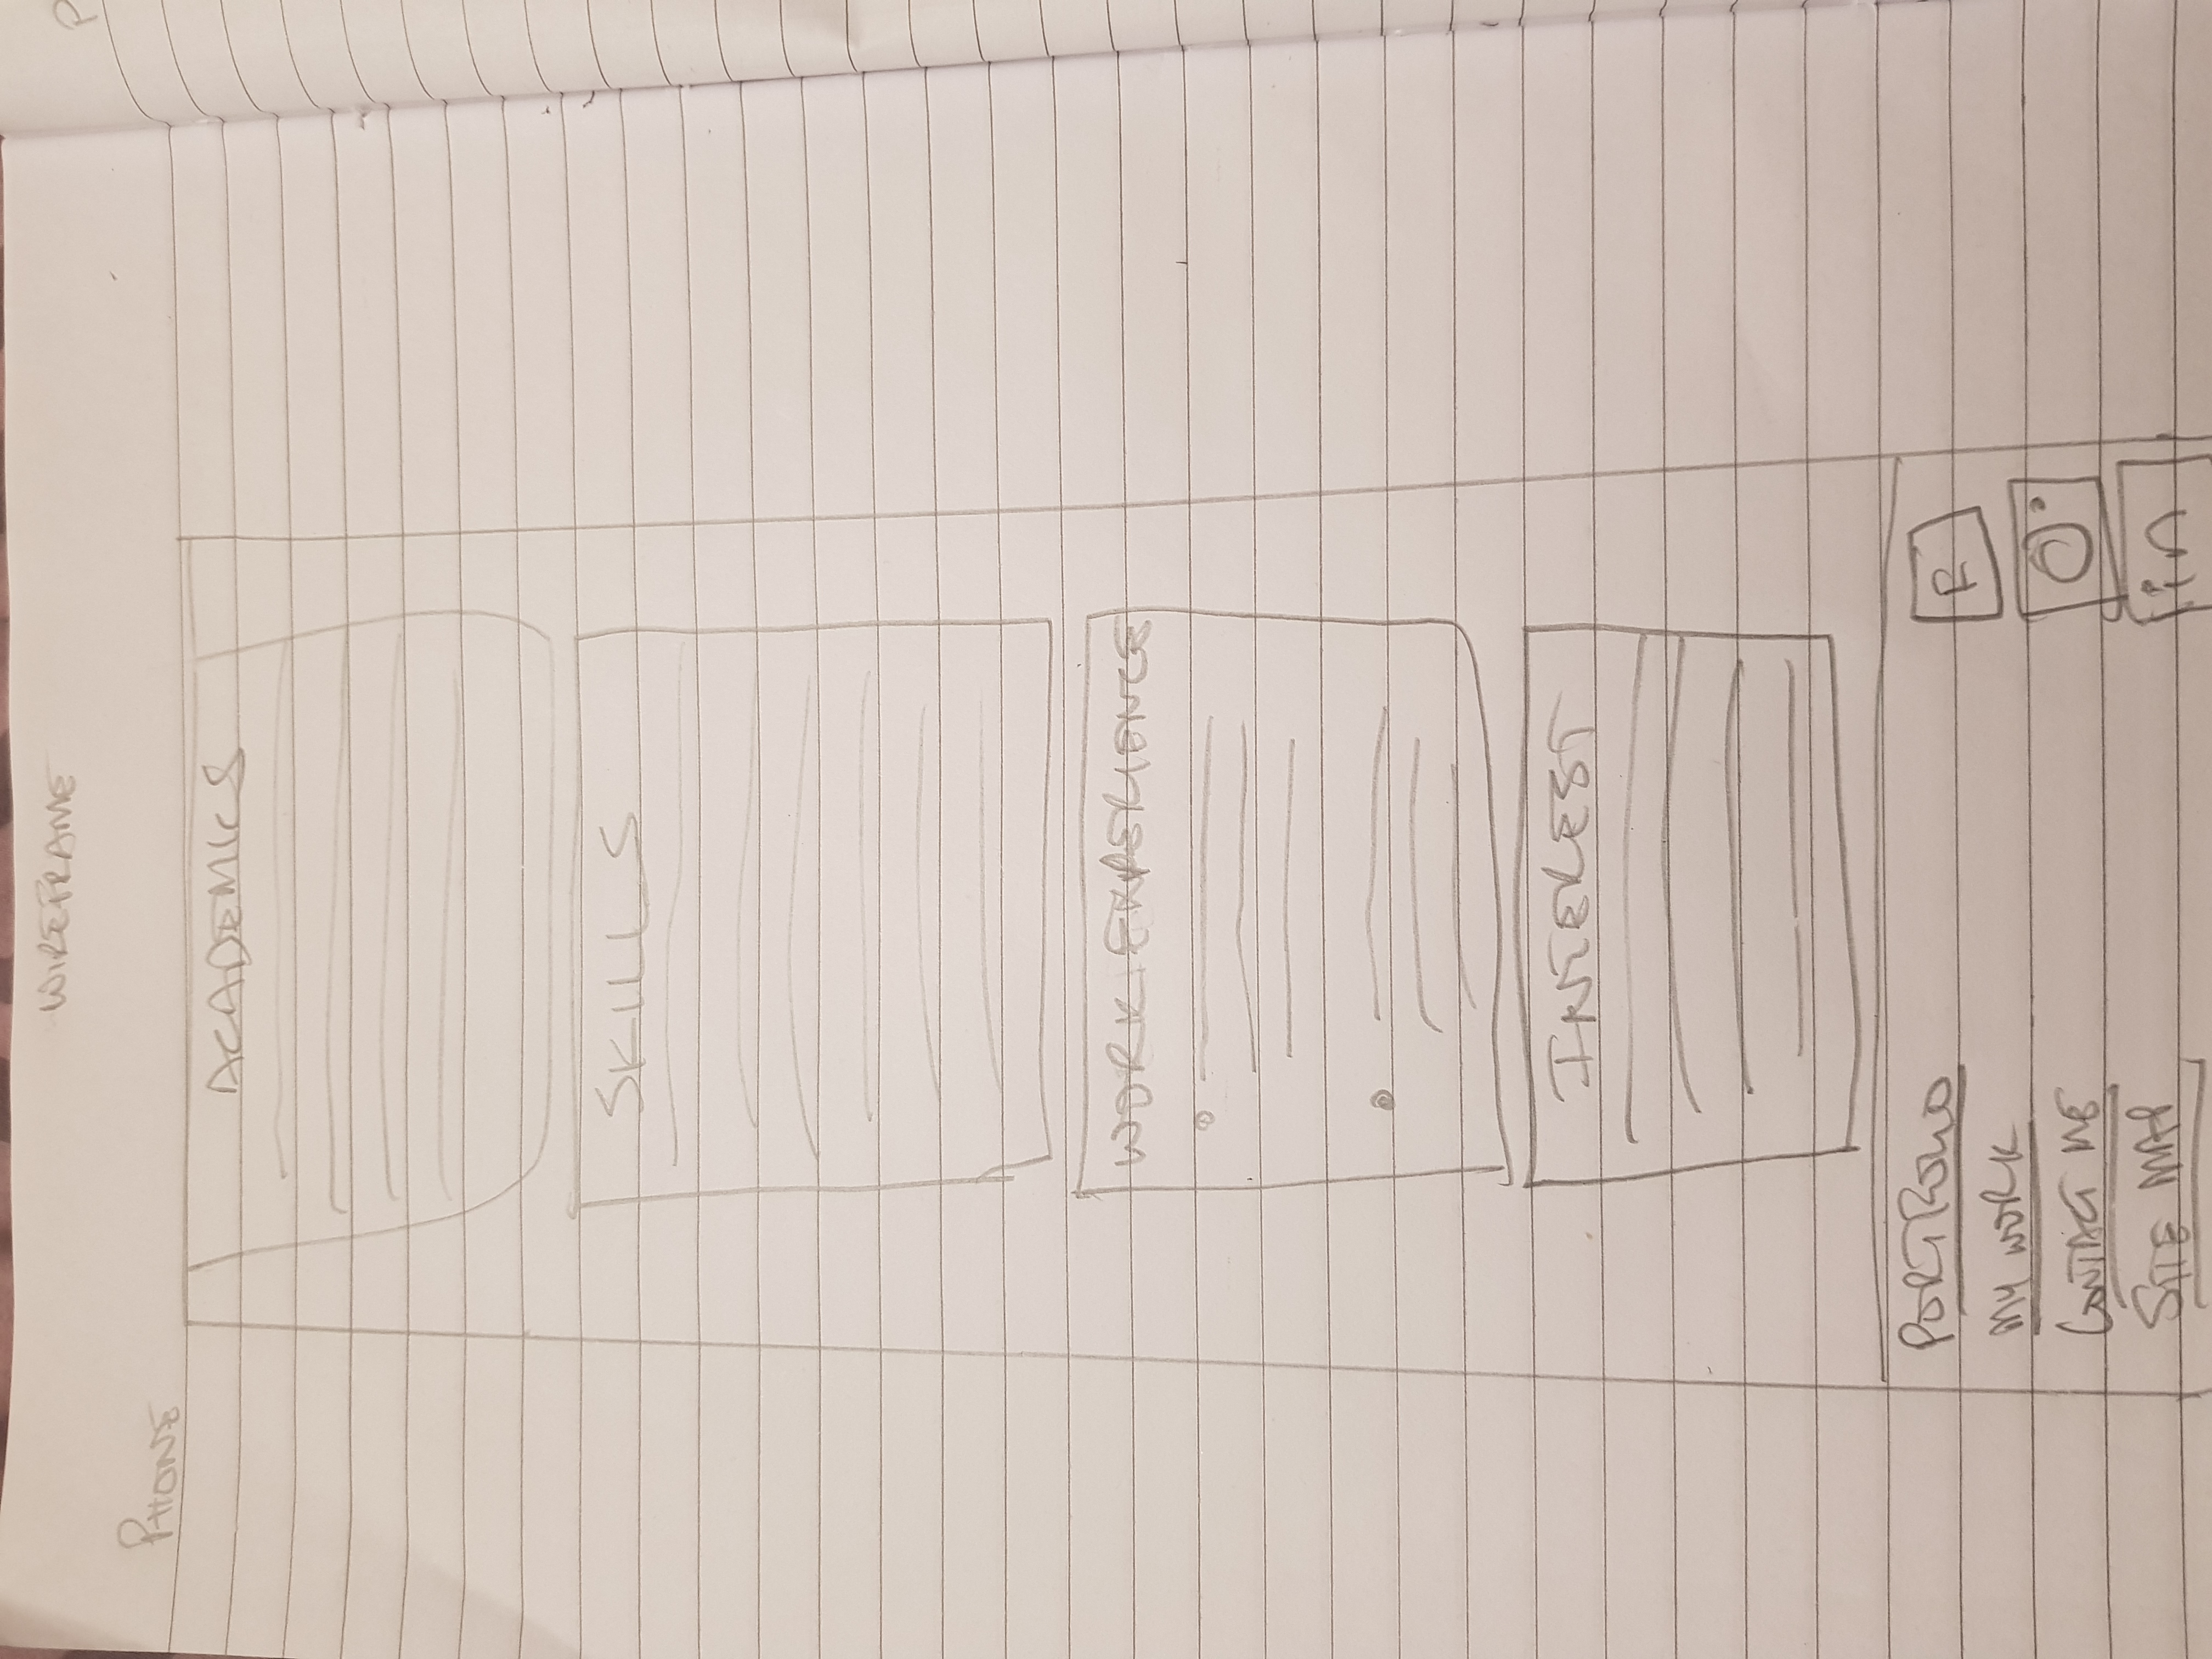 WIREFRAME
P
PHONE
ACADEMICS
SKILLS
WORK EXPERIENCE
INTEREST
PORTFOLIO
F
MY WORK
CONTACT ME
SITE MAP
in